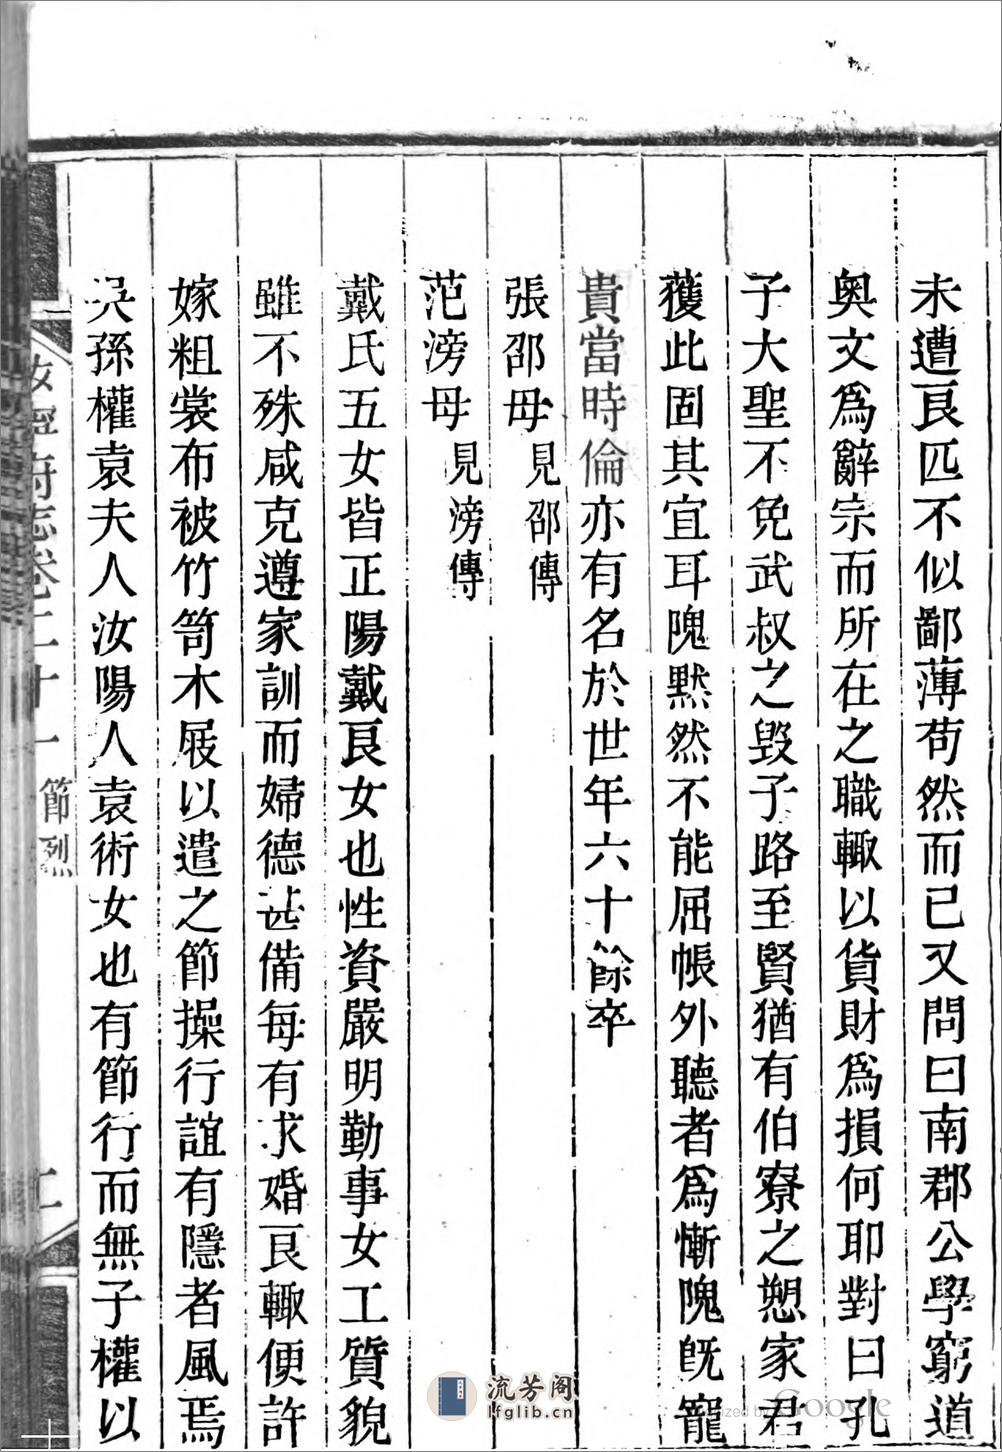 未遭良匹不似鄙薄苟然而已又問曰南郡公學窮道
奥文爲辭宗而所在之職輙以貨財爲損何耶對曰孔
子大聖不免武叔之毁子路至賢猶有伯寮之愬家君
獲此固其宜耳隗黙然不能屈帳外聽者爲慚隗旣寵
貴當時倫亦有名於世年六十餘卒
張邵母見邵傳
范滂母見滂傳
戴氏五女皆正陽戴良女也性資嚴明勤事女工質貌
雖不殊咸克遵家訓而婦德甚備每有求婚良輙便許
嫁粗裳布被竹笥木屐以遣之節操行誼有隱者風焉
吳孫權袁夫人汝陽人袁術女也有節行而無子權以
汝寧府志卷二十一 節烈
流芳阁
lfglib.cn
Digitized by Google